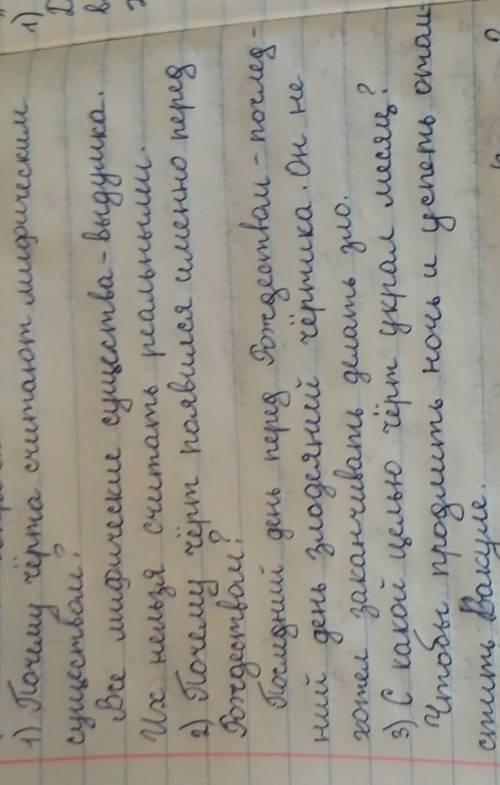 1) Почему чёрта считают мифическим
существом?
Все мифические существа - выдумка.
Их нельзя считать реальными.
2) Почему чёрт появился именно перед
Рождеством?
Последний день перед Рождеством - послед-
ний день злодеяний чёртика. Он не
хотел заканчивать делать зло.
3) С какой целью чёрт украл месяц?
Чтобы продлить ночь и успеть отом-
стить Вакуле.
1)